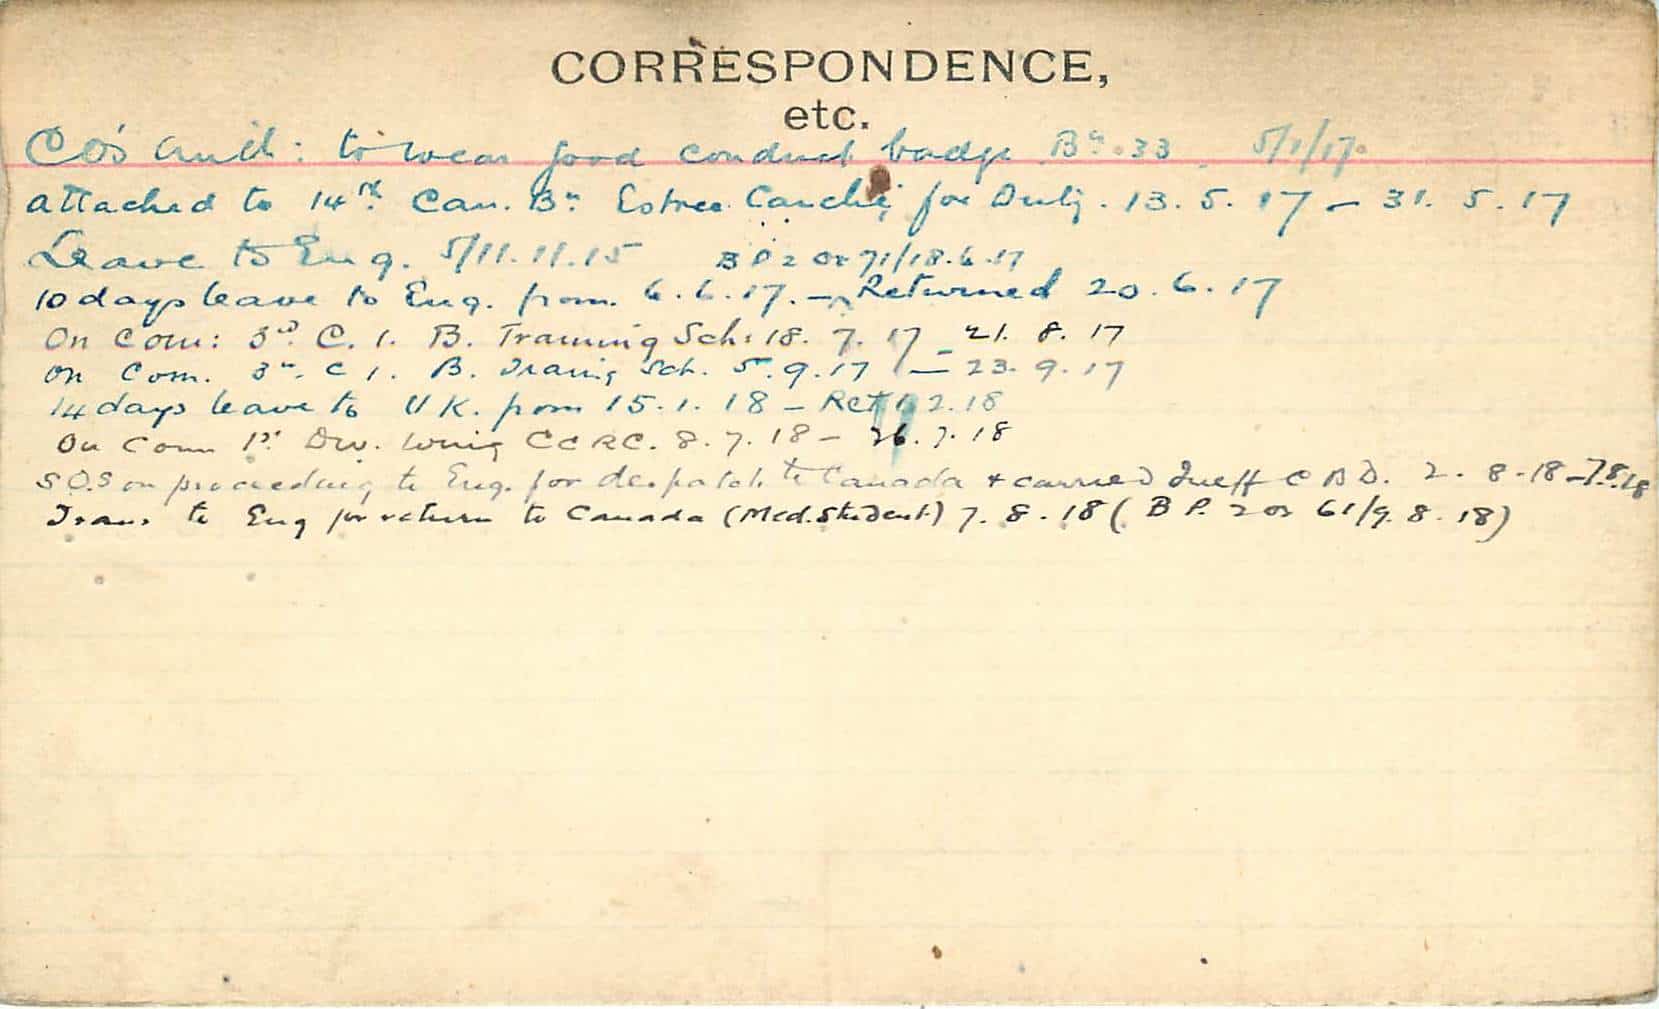 CORRESPONDENCE,
etc.
CO's Auth: to wear good conduct badge Bn. 33. 5/1/17.
attached to 14th Can. Bn. Estree Cauchie for Duty. 13. 5. 17 – 31. 5. 17
Leave to Eng. 5/11.11.15 B P 2 Or 71/18.6.17
10 days leave to Eng. from 6.6.17. – Returned 20.6.17
On Com: 3rd C. I. B. Training Sch: 18. 7. 17 – 21. 8. 17
On Com. 3rd C I. B. Traing Sch. 5.9.17 – 23. 9. 17
14 days leave to U K. from 15.1.18 – Ret 2.18
On Com 1st Div. Wing CCRC. 8.7.18 – 26.7.18
S.O.S on proceeding to Eng. for despatch to Canada + carried Ineff C B D. 2. 8-18 – 7.8.18
Trans to Eng for return to Canada (Med. Student) 7. 8. 18 (B P. 2 or 61/9. 8. 18)